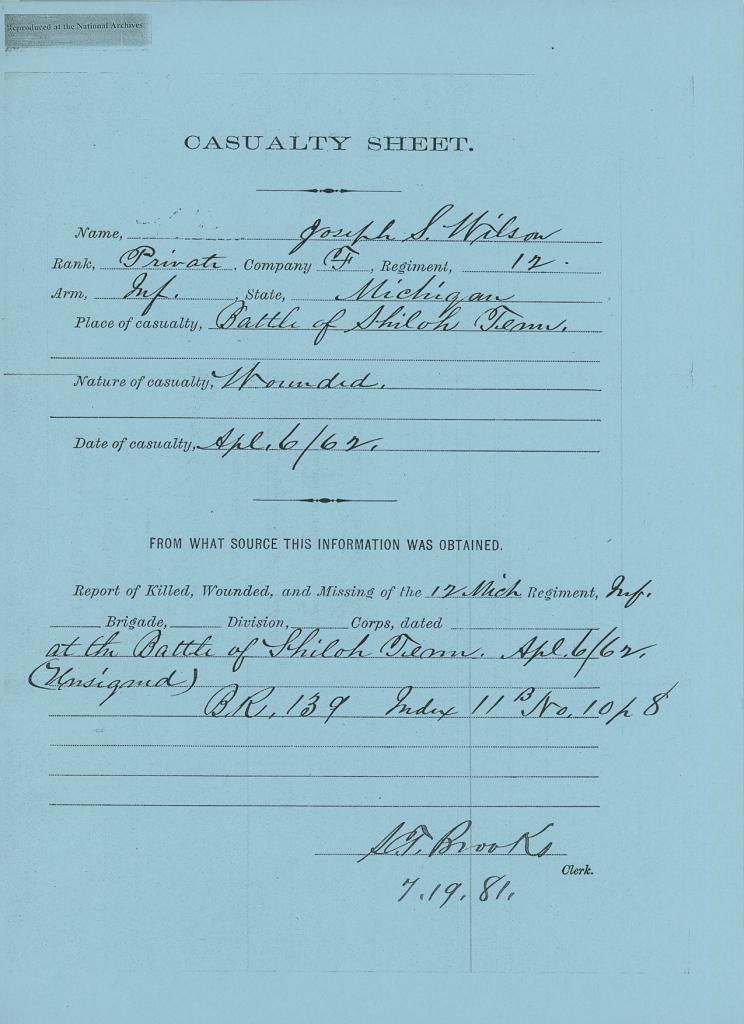 Reproduced at the National Archives
CASUALTY SHEET.
Name, Joseph S. Wilson
Rank, Private, Company F, Regiment, 12.
Arm, Inf., State, Michigan
Place of casualty, Battle of Shiloh Tenn.
Nature of casualty, Wounded.
Date of casualty, Apl. 6/62.
FROM WHAT SOURCE THIS INFORMATION WAS OBTAINED.
Report of Killed, Wounded, and Missing of the 12 Mich Regiment, Inf.
Brigade, Division, Corps, dated
at the Battle of Shiloh Tenn. Apl. 6/62.
(Unsigned)
B.R. 139 Index 11 B No. 10 p 8
S.T. Brooks
Clerk.
7.19.81.